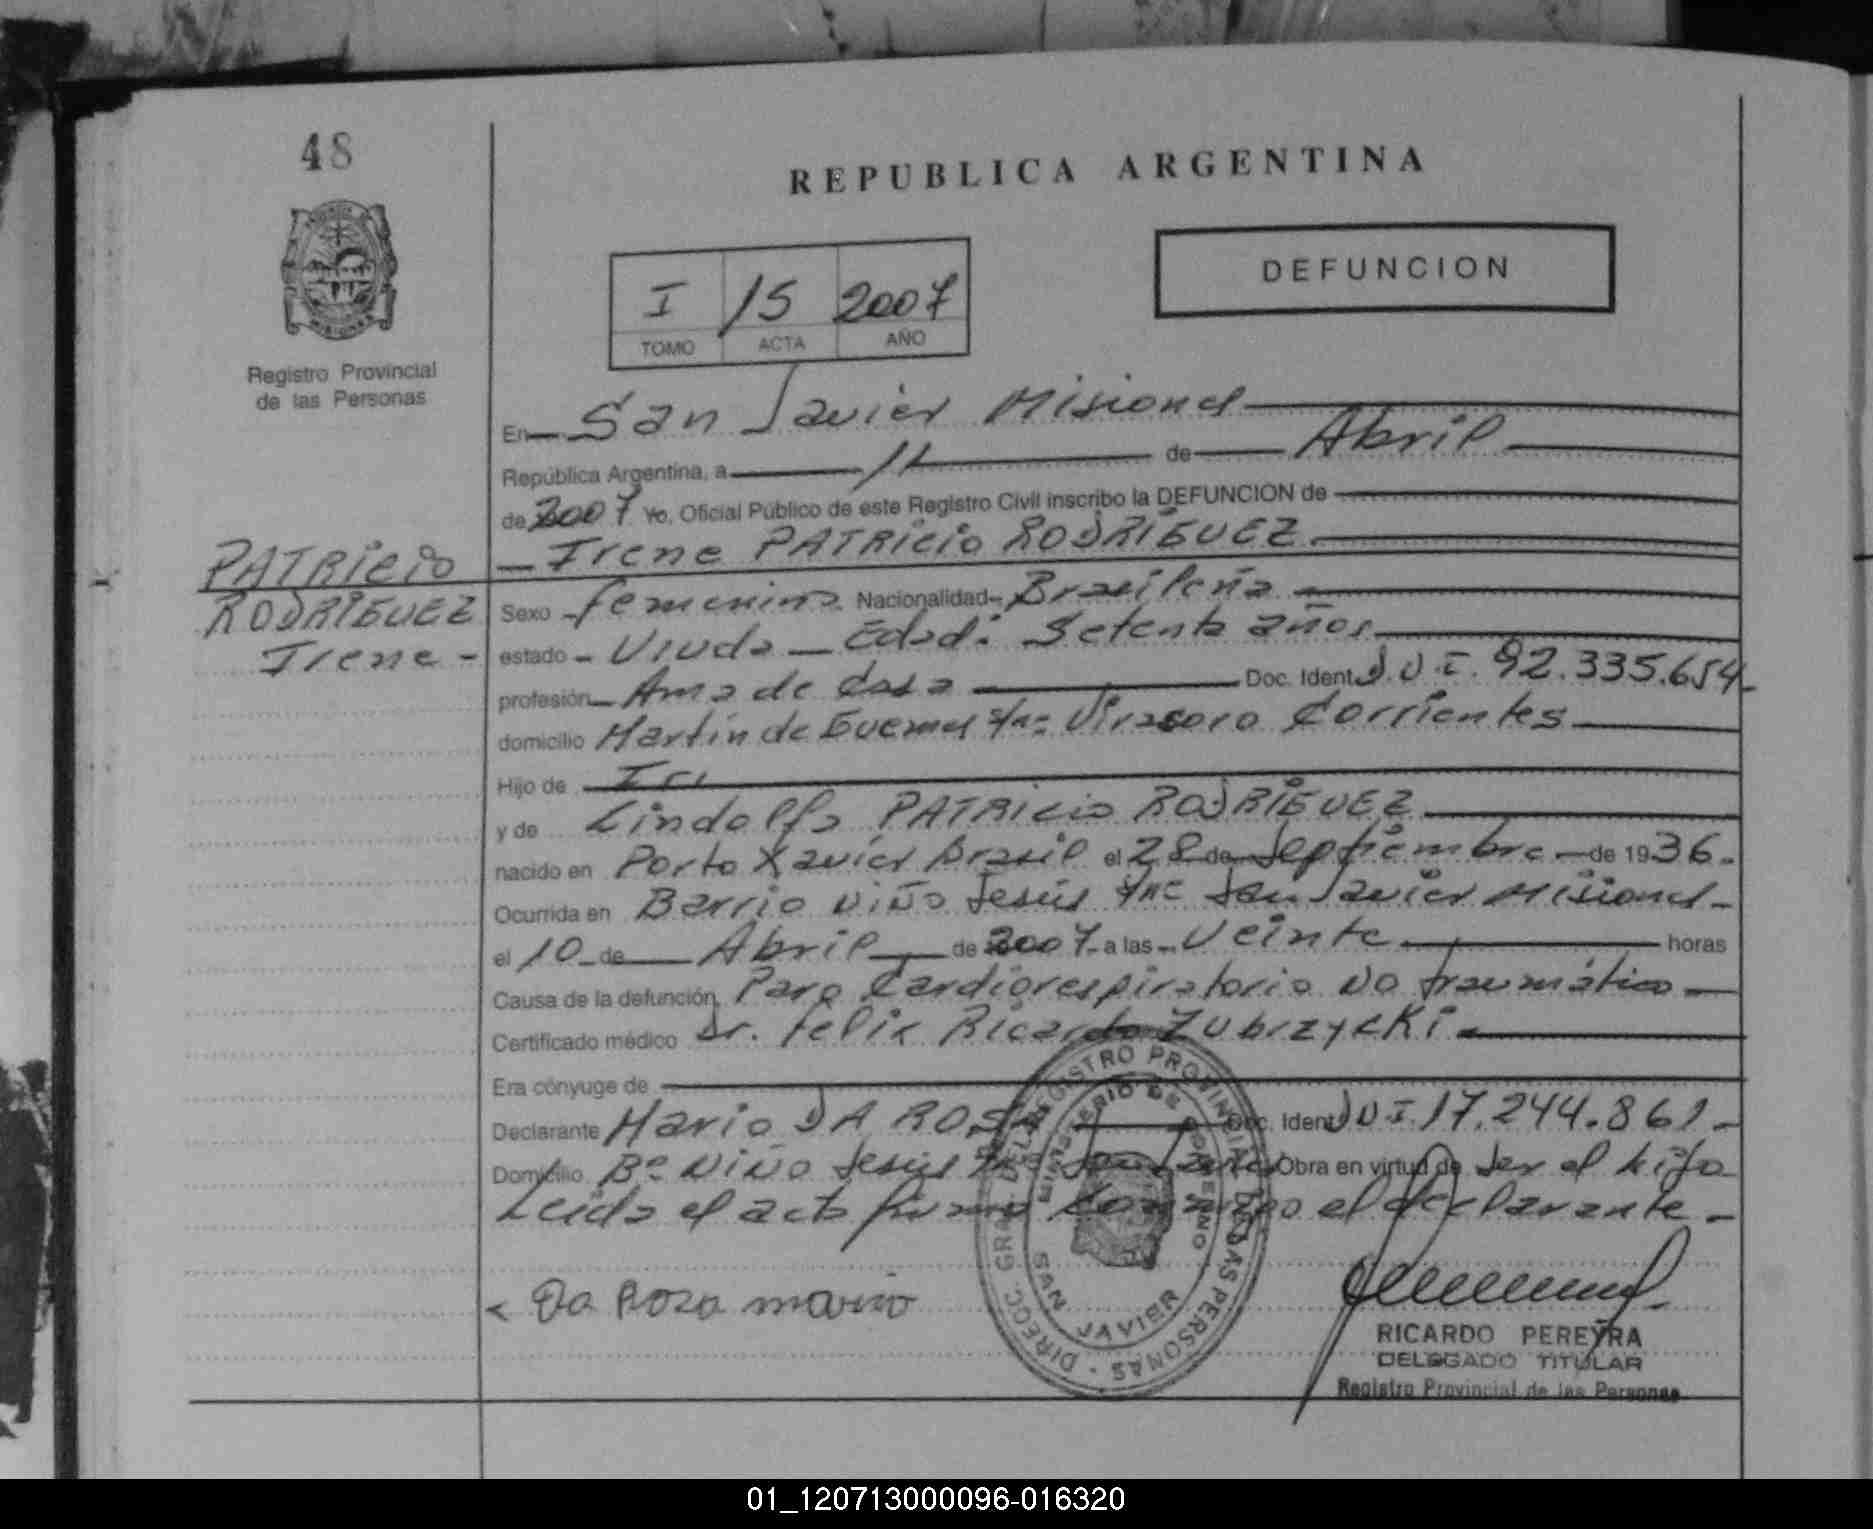 48
REPUBLICA ARGENTINA
MISIONES
Registro Provincial
de las Personas
DEFUNCION
I 15 2007
TOMO ACTA AÑO
En San Javier Misiones
República Argentina, a 11 de Abril
de 2007 Yo, Oficial Público de este Registro Civil inscribo la DEFUNCION de
Irene PATRICIO RODRIGUEZ
PATRICIO
RODRIGUEZ
Irene -
Sexo femenino Nacionalidad Brasileña
estado - Viuda - Edad: Setenta años
profesión Ama de Casa Doc. Ident D.N.I. 92.335.654-
domicilio Martín de Guemes s/nº Virasoro Corrientes
Hijo de
y de Lindolfo PATRICIO RODRIGUEZ
nacido en Porto Xavier Brasil el 28 de Septiembre de 1936.
Ocurrida en Barrio Niño Jesús San Javier Misiones -
el 10 de Abril de 2007 a las Veinte horas
Causa de la defunción Paro Cardiorespiratorio No traumático
Certificado médico Dr. Felix Ricardo Zubrzycki
Era cónyuge de
Declarante Mario DA ROSA Doc. Ident D.N.I. 17.244.861-
Domicilio Bº Niño Jesús San Javier Obra en virtud de Ser el hijo
Leida el acta firma Conmigo el declarante -
Da Roza mario
DIRECC. GRAL. DEL REGISTRO PROVINCIAL DE LAS PERSONAS -
MINISTERIO DE GOBIERNO
SAN JAVIER
RICARDO PEREYRA
DELEGADO TITULAR
Registro Provincial de las Personas
01_120713000096-016320